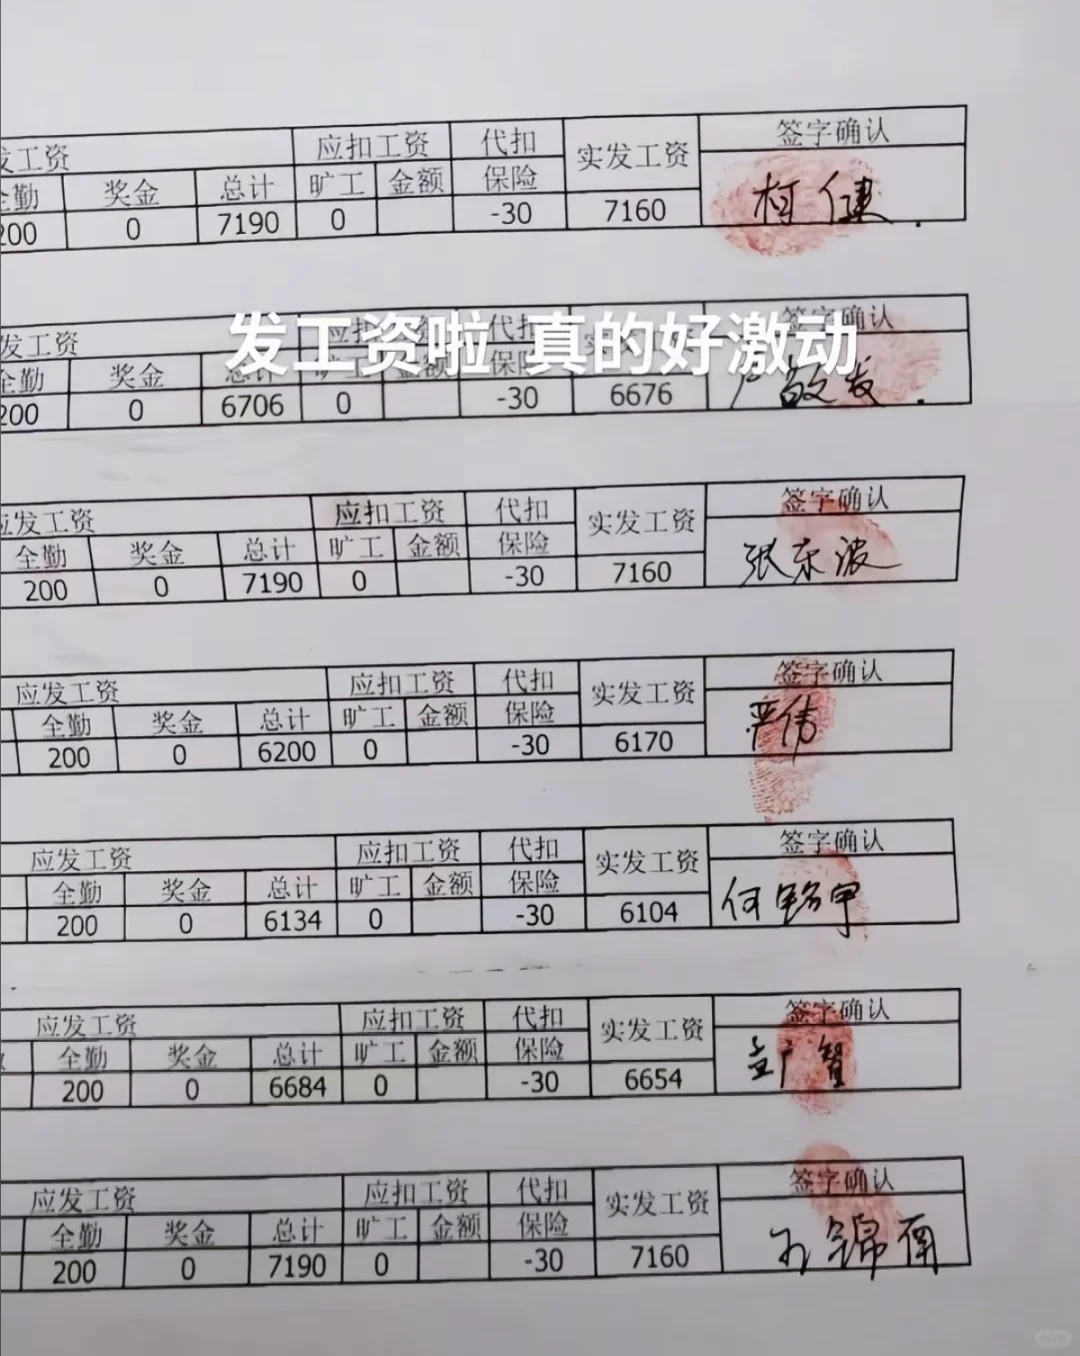 发工资 应扣工资 代扣 实发工资 签字确认
全勤 奖金 总计 旷工 金额 保险
200 0 7190 0 -30 7160 柯健.
发工资 应扣工资 代扣 签字确认
发工资啦 真的好激动
全勤 奖金 总计 旷工 金额 保险
200 0 6706 0 -30 6676
应发工资 应扣工资 代扣 实发工资 签字确认
全勤 奖金 总计 旷工 金额 保险
200 0 7190 0 -30 7160 张东波
应发工资 应扣工资 代扣 实发工资 签字确认
全勤 奖金 总计 旷工 金额 保险
200 0 6200 0 -30 6170 严伟
应发工资 应扣工资 代扣 实发工资 签字确认
全勤 奖金 总计 旷工 金额 保险
200 0 6134 0 -30 6104 何
应发工资 应扣工资 代扣 实发工资 签字确认
全勤 奖金 总计 旷工 金额 保险
200 0 6684 0 -30 6654
应发工资 应扣工资 代扣 实发工资 签字确认
全勤 奖金 总计 旷工 金额 保险
200 0 7190 0 -30 7160